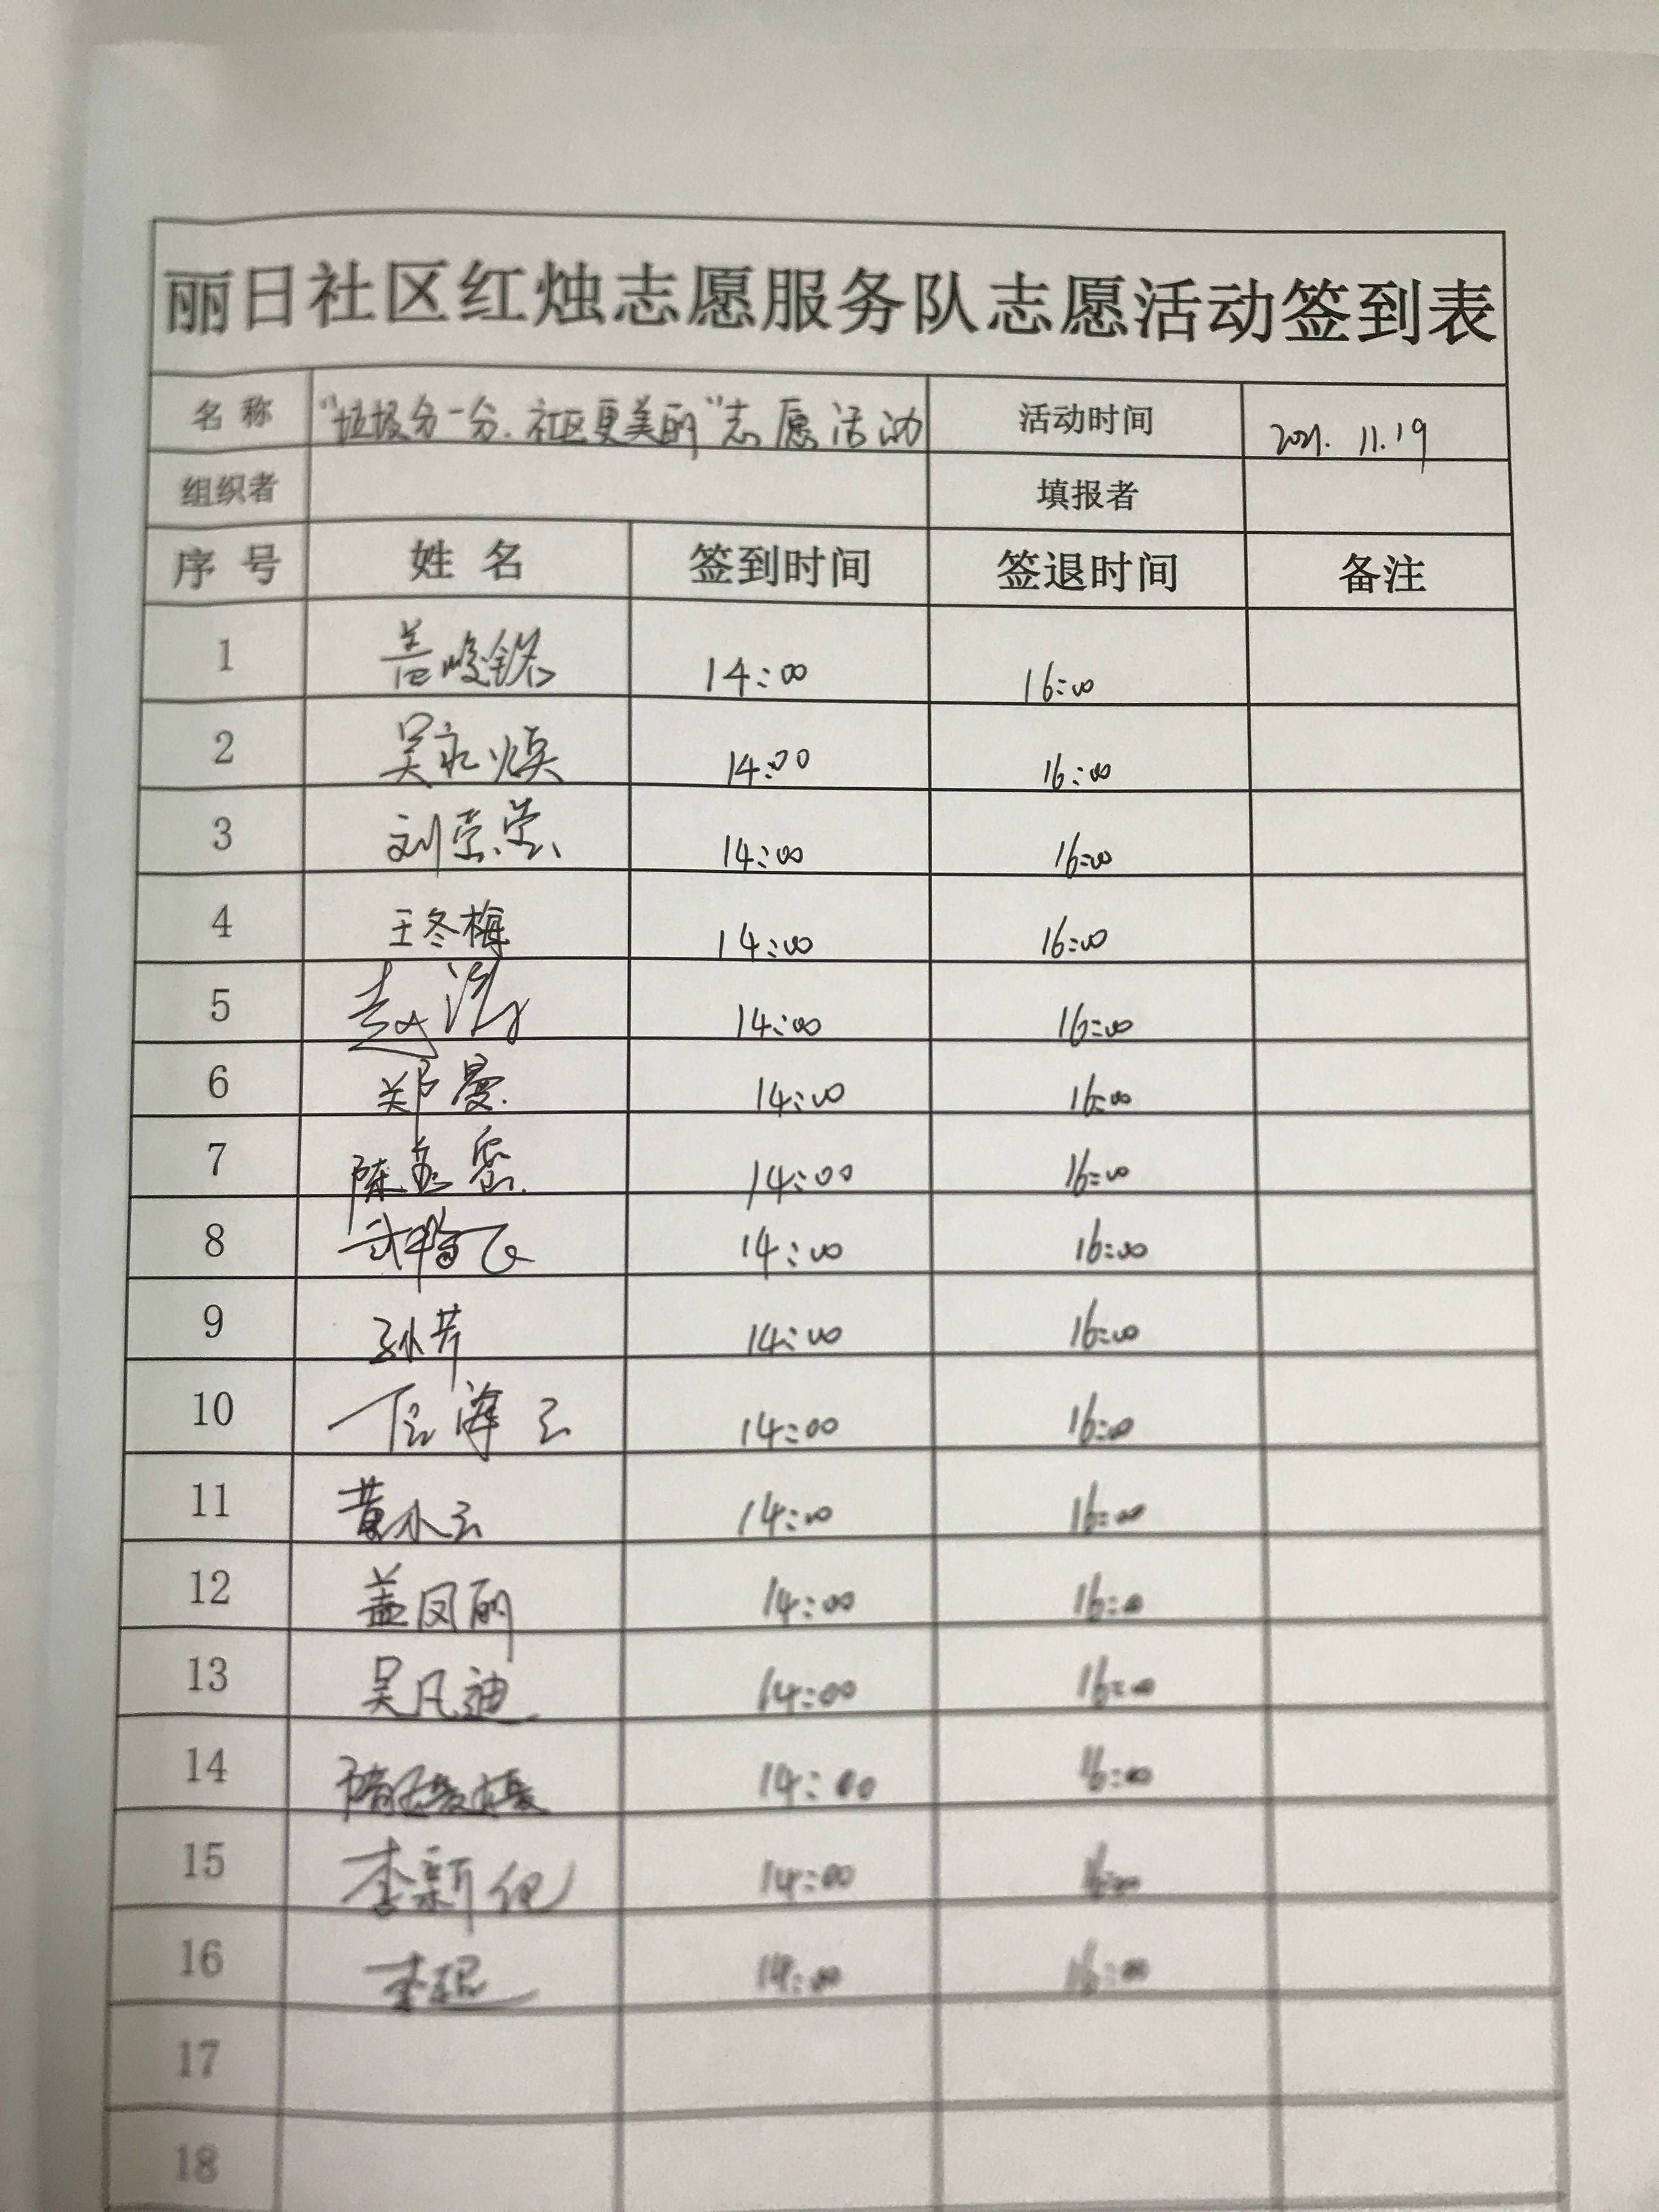 丽日社区红烛志愿服务队志愿活动签到表
名称 "垃圾分一分.社区更美丽"志愿活动 活动时间 2021.11.19
组织者 填报者
序号 姓名 签到时间 签退时间 备注
1 14:00 16:00
2 吴永焕 14:00 16:00
3 刘荣荣 14:00 16:00
4 王冬梅 14:00 16:00
5 赵 14:00 16:00
6 郑曼 14:00 16:00
7 陈 14:00 16:00
8 14:00 16:00
9 孙芳 14:00 16:00
10 任海云 14:00 16:00
11 黄小云 14:00 16:00
12 盖凤丽 14:00 16:00
13 吴凡迪 14:00 16:00
14 14:00 16:00
15 李新 14:00 16:00
16 李 14:00 16:00
17
18